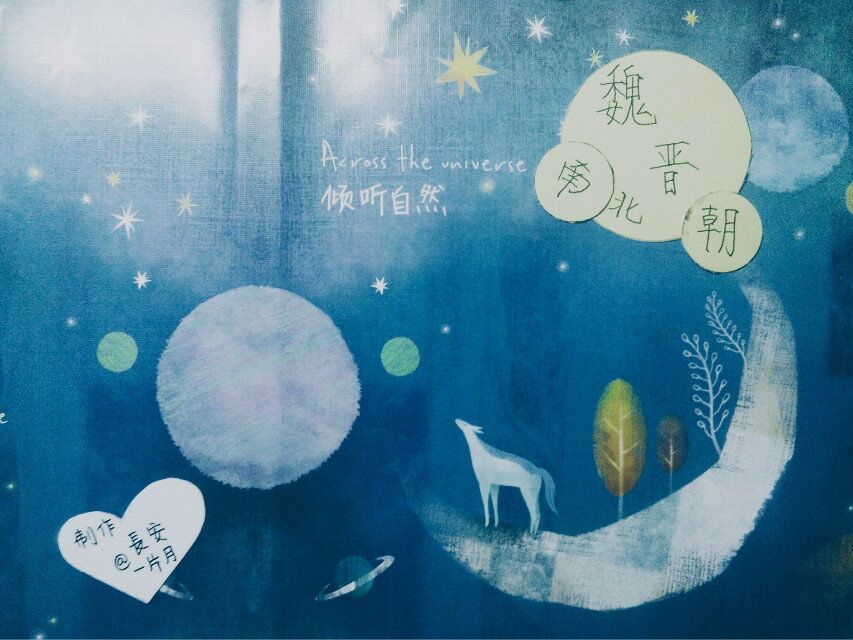 Across the universe
倾听自然
魏
晋
南
北
朝
制作
@長安
一片月